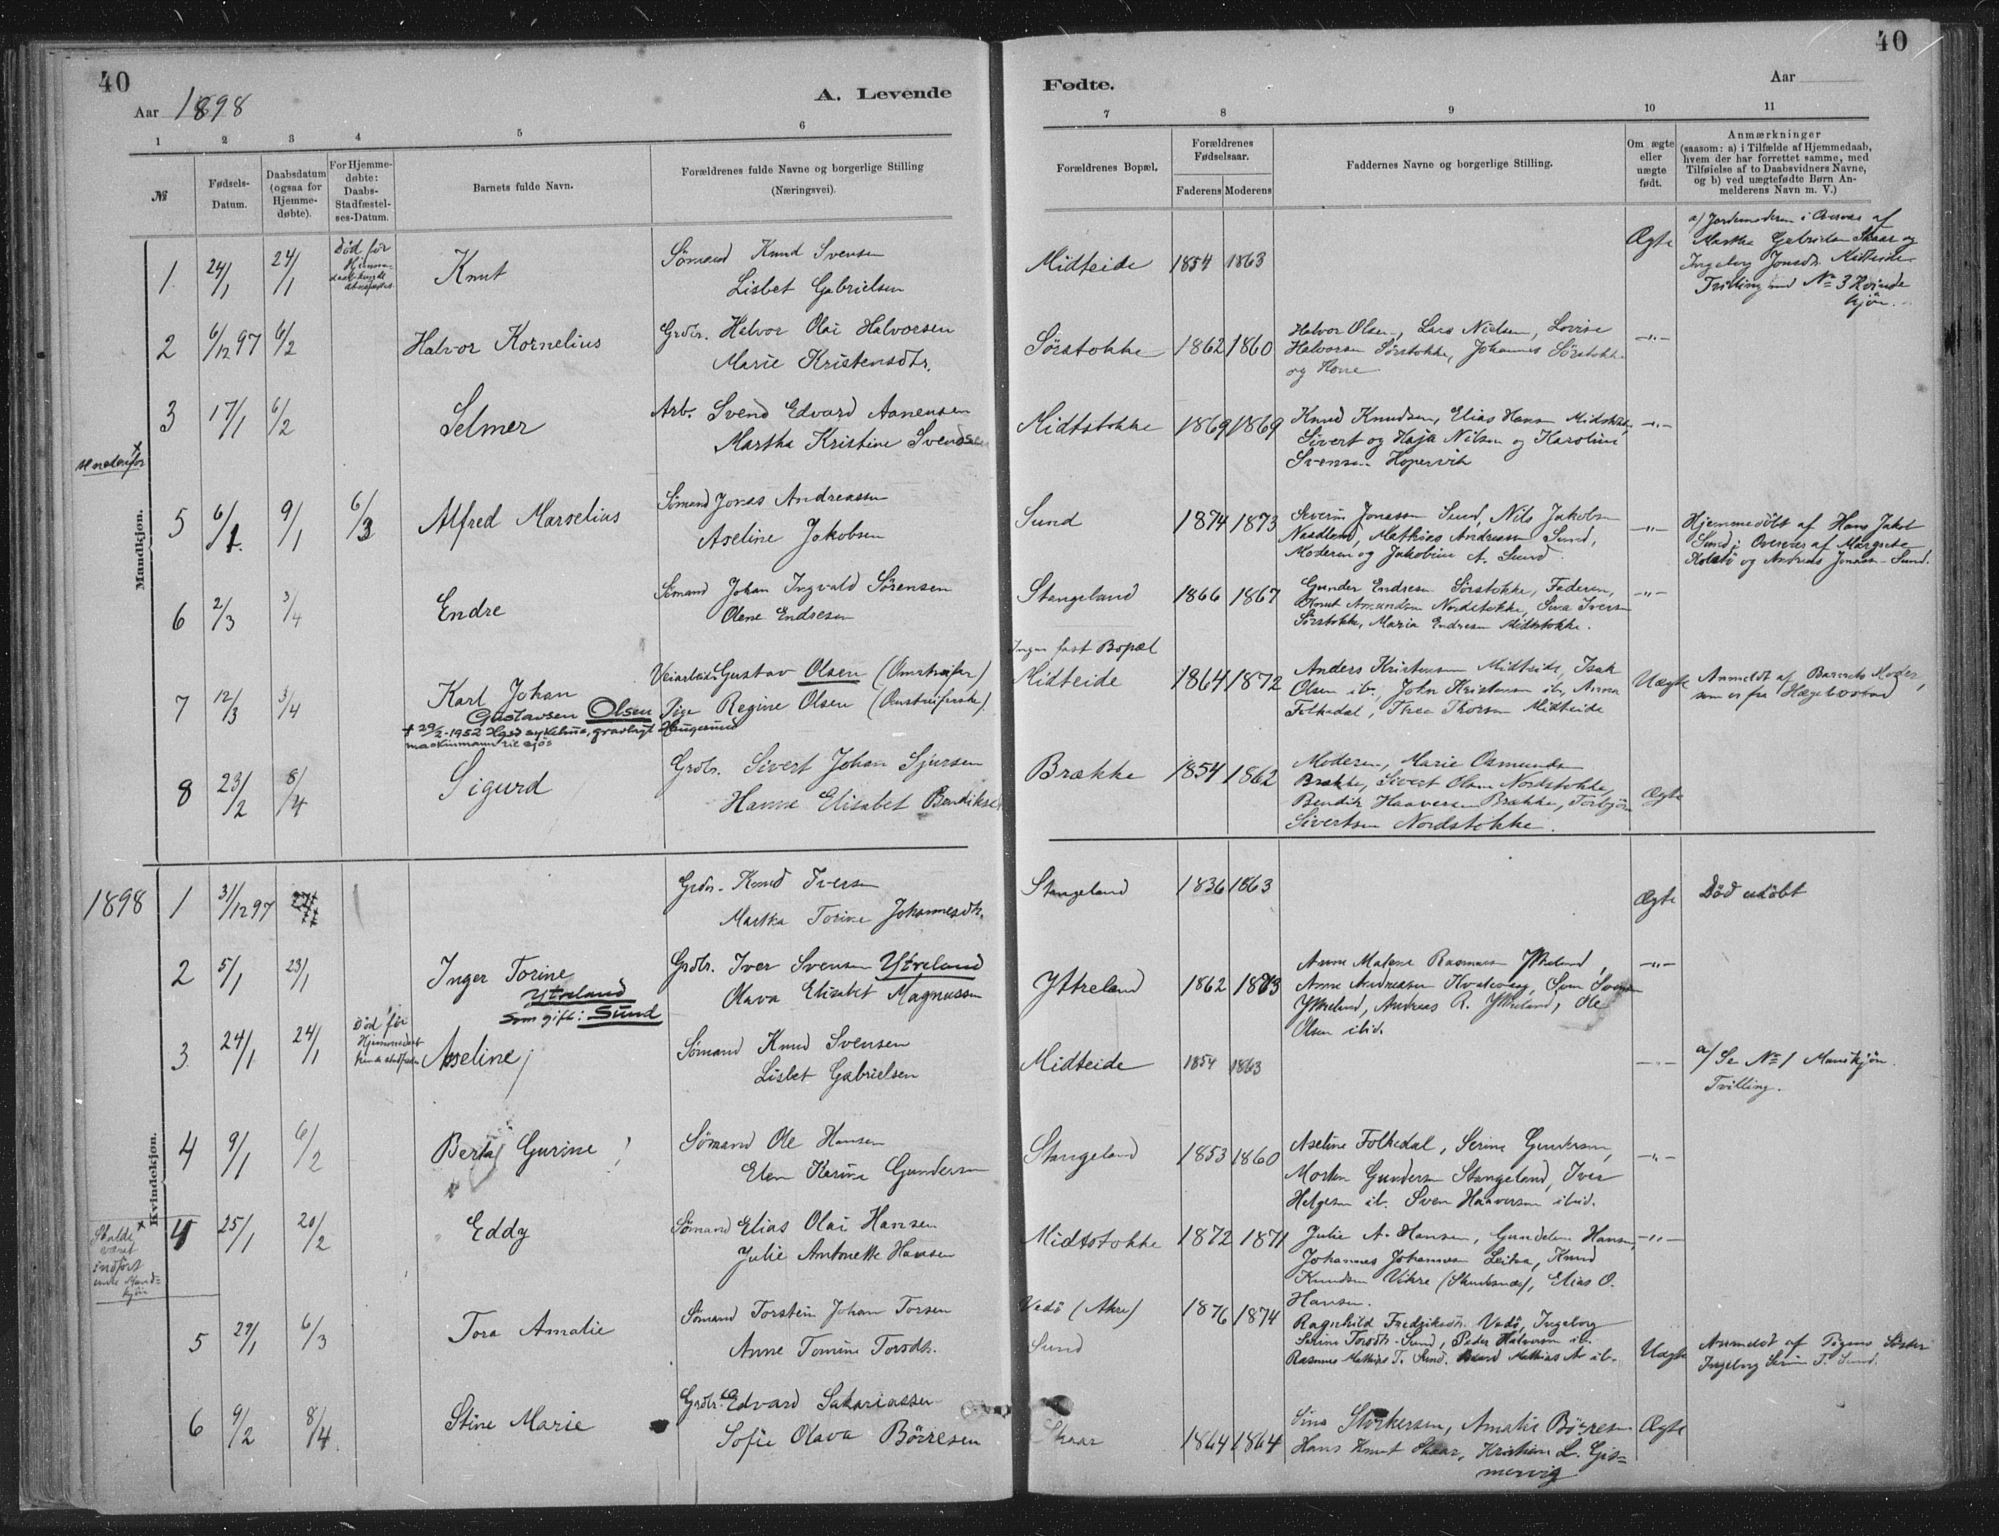 40
Aar 1898
A. Levende
1 2 3 4 5 6
№
Fødsels-Datum.
Daabsdatum (ogsaa for Hjemme-døbte).
For Hjemme-døbte: Daabs-Stadfæstel-ses-Datum.
Barnets fulde Navn.
Forældrenes fulde Navne og borgerlige Stilling
(Næringsvei).
Mandkjøn.
1 24/1 24/1 Død før Knut Sømand Knud Svensen
Lisbet Gabrielsen
2 6/12 97 6/2 Halvor Kornelius Grdbr. Halvor Olai Halvorsen
Marie Kristensdtr.
3 17/1 6/2 Selmer Arb. Svend Edvard Aanensen
Martha Kristine Svendsen
se nedenfor
5 6/1 9/1 6/3 Alfred Marselius Sømand Jonas Andreassen
Aseline Jakobsen
6 2/3 3/4 Endre Sømand Johan Ingvald Sørensen
Olene Endresen
7 12/3 3/4 Karl Johan Gustavsen Olsen Veiarbeider Gustav Olsen (Omstreifer)
Pige Regine Olsen (Omstreiferske)
† 29/2-1952 Hgsd sykehus, gravlagt Haugesund
maskinmann til sjøs
8 23/2 8/4 Sigurd Grdbr. Sivert Johan Sjursen
Hanne Elisabet Bendiksen
Kvindekjøn.
1898 1 31/12 97 Grdbr. Knud Iversen
Martha Torine Johannesdtr.
2 5/1 23/1 Inger Torine Ytreland Grdbr. Iver Svensen Ytreland
som gift: Sund Olava Elisabet Magnussen
3 24/1 24/1 Død før Aseline Sømand Knud Svensen
Lisbet Gabrielsen
4 9/1 6/2 Berta Gurine Sømand Ole Hansen
Elen Karine Gundersen
Skulde været indført under Mand-kjøn
4 25/1 20/2 Eddy Sømand Elias Olai Hansen
Julie Antonette Hansen
5 29/1 6/3 Tora Amalie Sømand Torstein Johan Torsen
Anne Tomine Torsdtr.
6 9/2 8/4 Stine Marie Grdbr. Edvard Sakariassen
Sofie Olava Børresen
40
Fødte.
Aar
7 8 9 10 11
Forældrenes Bopæl.
Forældrenes Fødselsaar.
Faderens Moderens
Faddernes Navne og borgerlige Stilling.
Om ægte eller uægte født.
Anmærkninger
(saasom: a) i Tilfælde af Hjemmedaab,
hvem der har forrettet samme, med
Tilføielse af to Daabsvidners Navne,
og b) ved uægtefødte Børn An-
melderens Navn m. V.)
Midteide 1854 1863 Ægte a/ Jordemoderen i Overvær af
Martha Gabrielsen Skaar og
Ingeborg Jonsdtr. Midteide
Tvilling med No 3 Kvinde
kjøn.
Sørstokke 1862 1860 Halvor Olsen, Lars Nielsen, Lovise
Halvorsen Sørstokke, Johannes Sørstokke
og Kone
Midtstokke 1869 1869 Knud Knudsen, Elias Hansen Midtstokke,
Sivert og Kaja Nilsen og Karoline
Svensen Kopervik
Sund 1874 1873 Severin Jonassen Sund, Nils Jakobsen
Mathias Andreassen Sund,
Moderen og Jakobine A. Sund.
Hjemmedøbt af Hans Jakob
Sund i Overvær af Margrete
Kolstø og Andreas Jonassen Sund.
Stangeland 1866 1867 Gunder Endresen Sørstokke, Faderen,
Knut Amundsen Nordstokke, Siva Iversen
Sørstokke, Maria Endresen Midtstokke.
Ingen fast Bopæl
Midteide 1864 1872 Anders Kristensen Midteide, Isak
Olsen ib., John Kristensen ib., Anna
Folkedal, Thea Thorsen Midteide
Uægte Anmeldt af Barnets Moder,
som er fra Hægebostad
Brække 1854 1862 Moderen, Marie Osmundsen
Brække, Sivert Olsen Nordstokke,
Bendik Haaversen Brække, Torbjørn
Sivertsen Nordstokke.
Ægte
Stangeland 1836 1863 Ægte Død udøbt
Yttreland 1862 1873 Anne Malene Rasmussen Ytreland,
Anne Andreassen Kvalevaag, Sven Svensen
Ytreland, Andreas R. Ytreland, Ole
Olsen ibid.
Midteide 1854 1863 a/ Se No 1 Mandkjøn.
Tvilling.
Stangeland 1853 1860 Aseline Folkedal, Serine Gundersen,
Morten Gundersen Stangeland, Iver
Helgesen ib. Sven Haaversen ibid.
Midtstokke 1872 1871 Julie A. Hansen, Gundela Hansen,
Johannes Johannesen Leitva, Knud
Knudsen Vikre (Skudesnes), Elias O.
Hansen.
Vedø (Akre) 1876 1874 Ragnhild Fredriksdtr. Vedø, Ingeborg
Sund Serine Torsdtr. Sund, Peder Halvorsen ib.
Rasmus Mathias T. Sund, Mathias A. ib.
Uægte Anmeldt af Pigens Søster
Ingeborg Serine T. Sund.
Skaar 1864 1864 Sina Størkersen, Amalie Børresen
Hans Knut Skaar, Kristian L. Gis-
mervig
Ægte